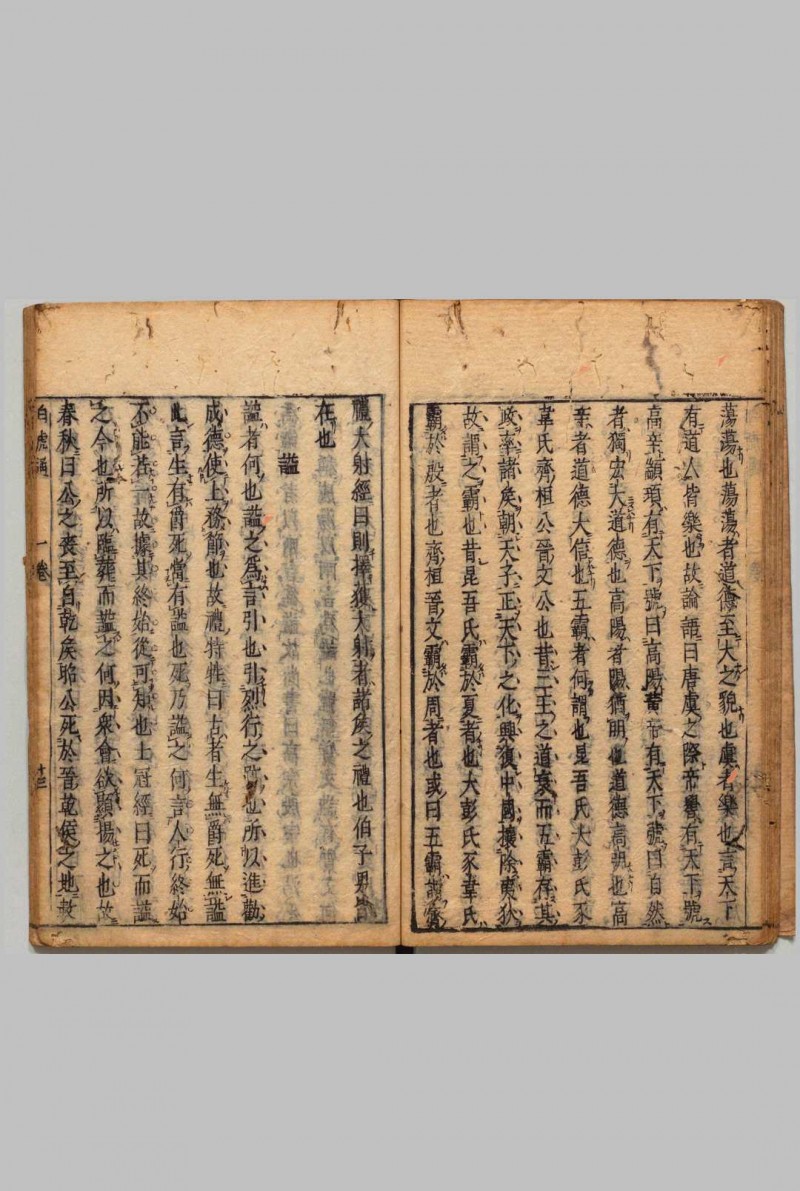 蕩蕩也蕩蕩者道德至大之貌也虞者樂也言天下
有道人皆樂也故論語曰唐虞之際帝嚳有天下號
高辛顓頊有天下號曰高陽黃帝有天下號曰自然
者獨宏大道德也高陽者陽猶明也道德高明也高
辛者道德大信也五霸者何謂也昆吾氏大彭氏豕
韋氏齊桓公晉文公也昔三王之道衰而五霸存其
政率諸侯朝天子正天下之化興復中國攘除夷狄
故謂之霸也昔昆吾氏霸於夏者也大彭氏豕韋氏
霸於殷者也齊桓晉文霸於周者也或曰五霸謂齊
禮大射經曰則擇獲大射者諸侯之禮也伯子男皆
在也
謚
謚者何也謚之為言引也引列行之跡也所以進勸
成德使上務節也故禮特牲曰古者生無爵死無謚
此言生有爵死當有謚也死乃謚之何言人行終始
不能若一故據其終始從可知也士冠經曰死而謚
之今也所以臨葬而謚之何因衆會欲顯揚之也故
春秋曰公之喪至自乾侯昭公死於晉乾侯之地數
白虎通 一卷 十三